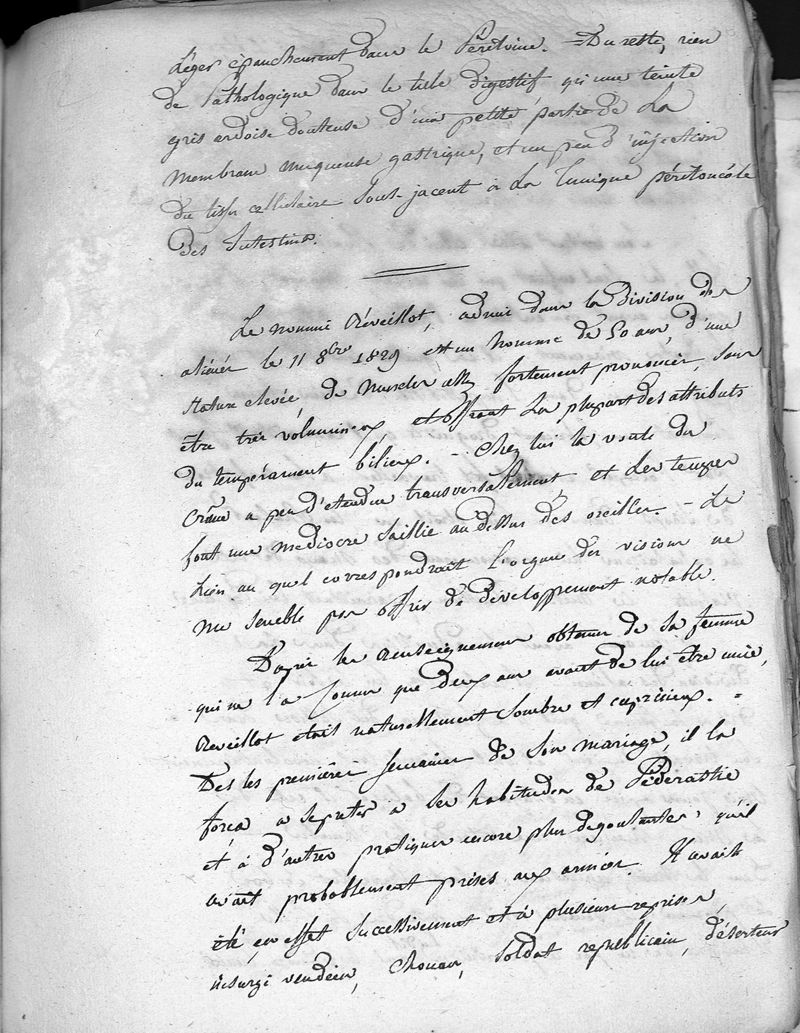 Léger épanchement dans le Péritoine. = Du reste, rien
de Pathologique dans le tube digestif qu'une teinte
gris ardoise douteuse d'une petite partie de La
membrane muqueuse gastrique, et un peu d'injection
du tissu cellulaire Sous-jacent à La Tunique péritonéale
des Intestins.
Le nommé Réveillot, admis dans la Division des
aliénés le 11 8bre 1829 est un homme de 50 ans, d'une
stature elevée, de muscles assez fortement prononcés, sans
être très volumineux, et offrant La plupart des attributs
du tempérament bilieux. - Chez lui la voute du
Crâne a peu d'etendue transversalement et Les tempes
font une mediocre saillie au dessus des oreilles. - Le
Lieu au quel correspondrait l'organe des visions ne
me semble pas offrir de développement notable.
D'après les renseignemens obtenus de sa femme
qui ne l'a Connu que deux ans avant de lui être unie,
Réveillot etait naturellement Sombre et capricieux. =
Dès les premières Semaines de Son mariage, il la
força a se prêter a ses habitudes de Péderastie
et à d'autres pratiques encore plus degoutantes, qu'il
avait probablement prises aux armées. Il avait
été, en effet Successivement et à plusieurs reprises,
insurgé vendéen, Chouan, Soldat republicain, déserteur